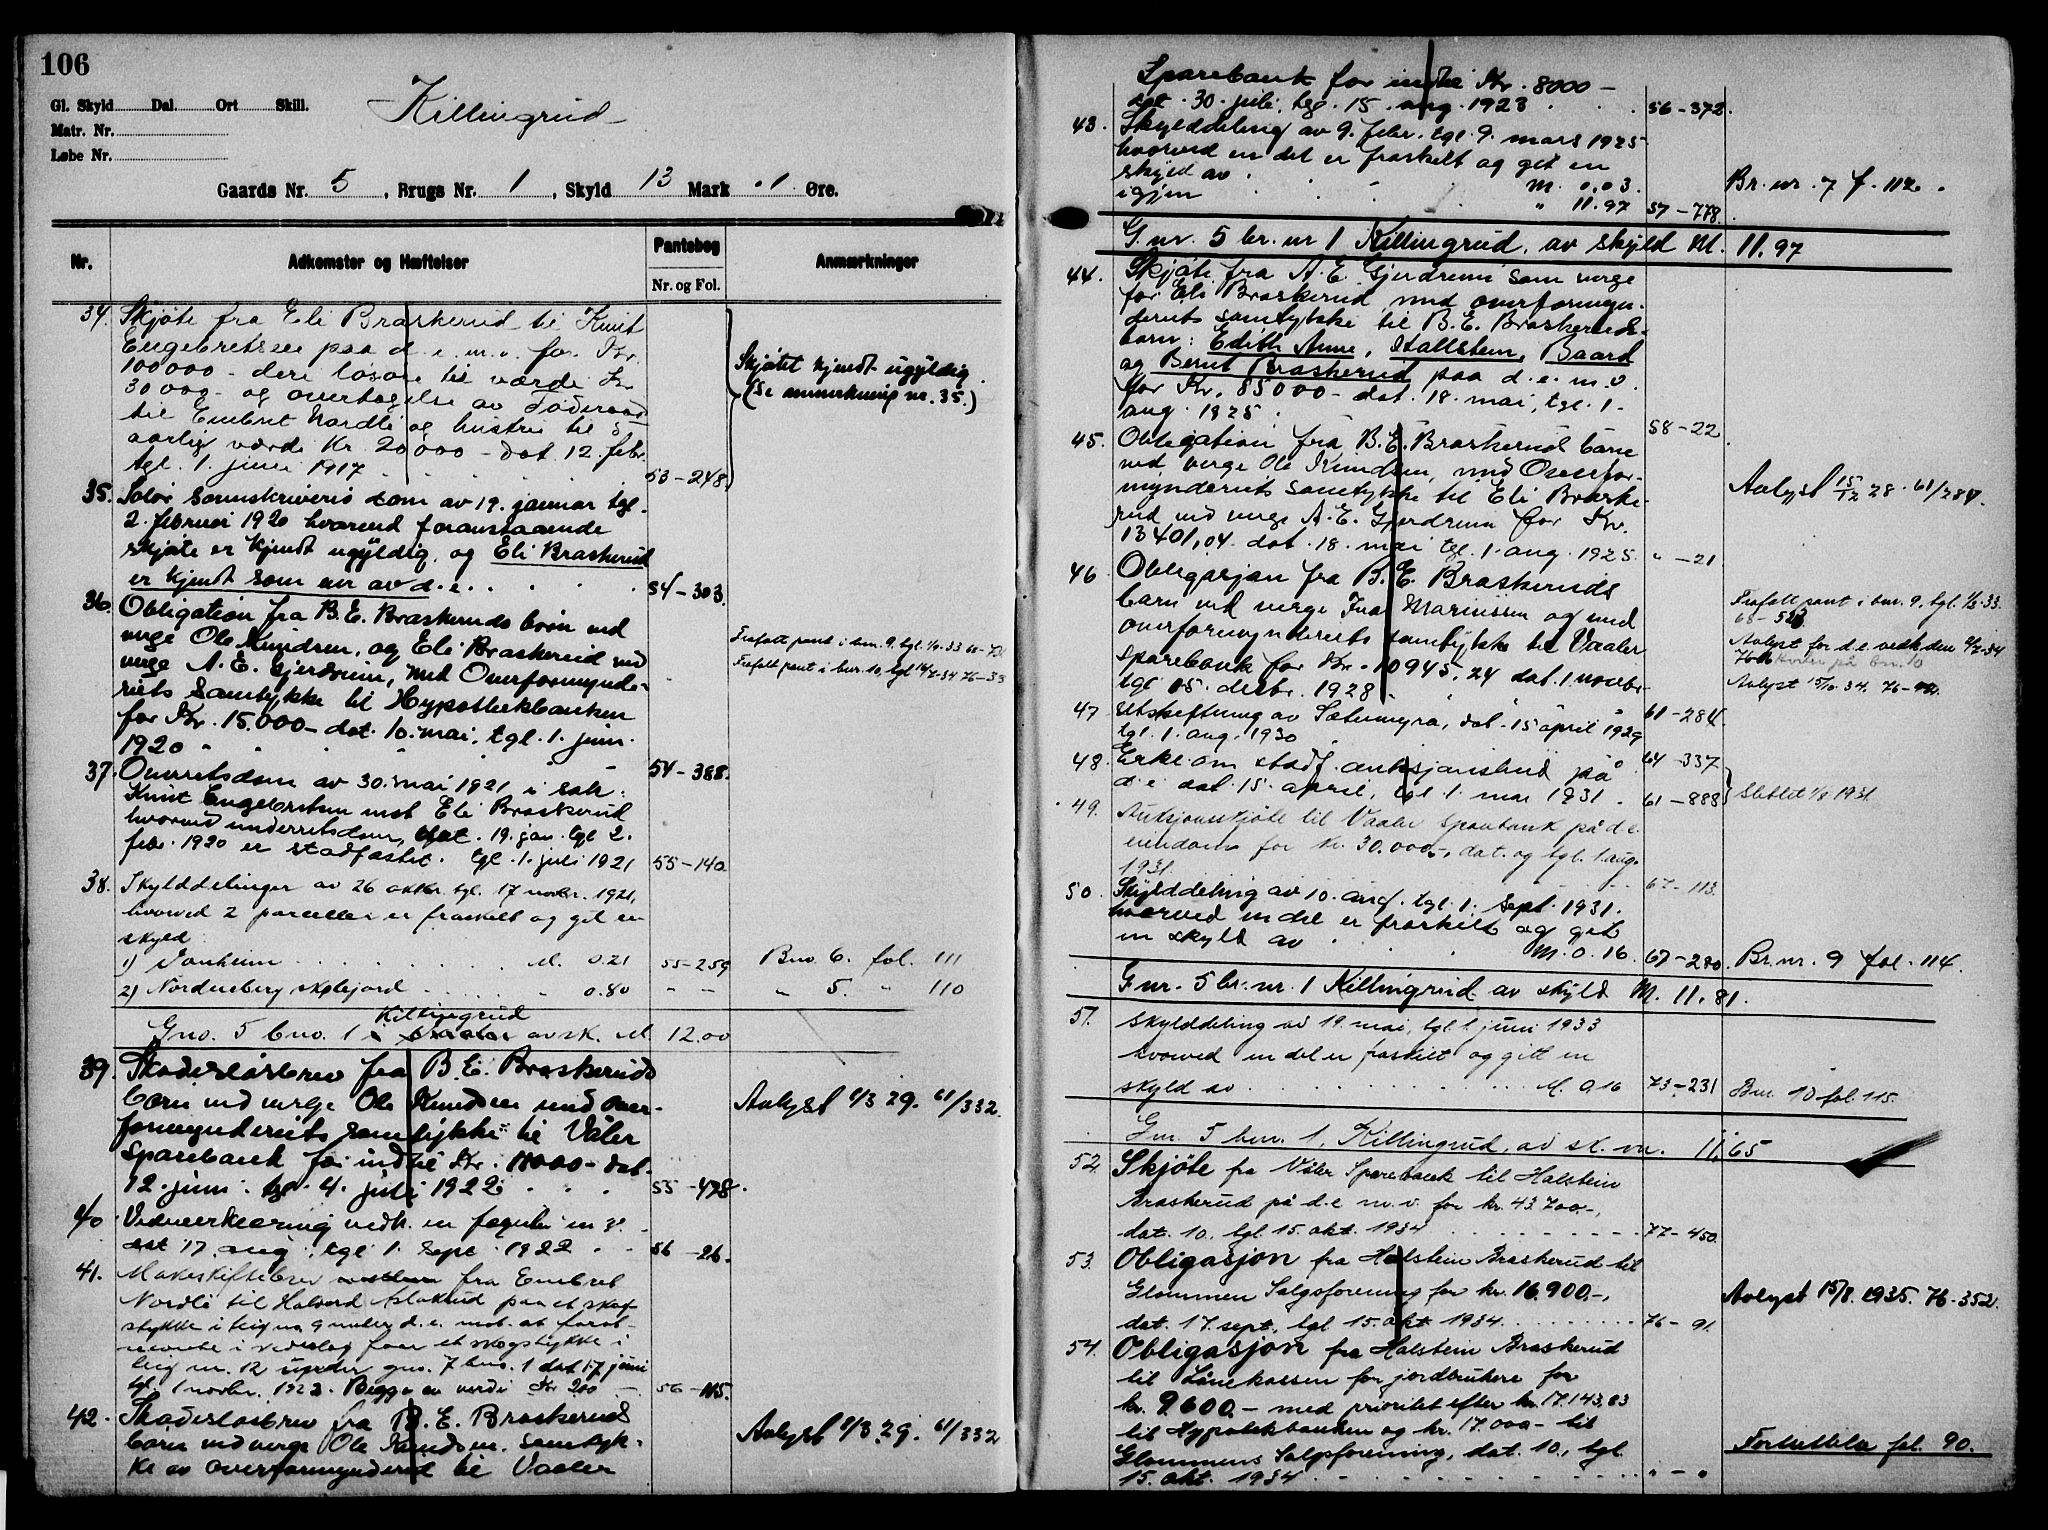 106
Gl. Skyld Dal Ort Skill.
Killingrud
Matr. Nr.
Løbe Nr.
Gaards Nr. 5, Brugs Nr. 1, Skyld 13 Mark 01 Øre.
Nr. Adkomster og Hæftelser Pantebog Nr. og Fol. Anmærkninger
34. Skjøte fra Eli Braskerud til Knut
Engebretsen paa d. e. m. v. for Kr.
100000 - dere løsøre til værde Kr
30000 - og overtagelse av Föderaad
til Embret Nordli og hustru til 5
aarlig værde Kr 20000 - Dat. 12. febr.
tgl. 1. juni 1917 53-248.
Skjøtet kjendt ugyldig.
(Se anmerkning nr. 35.)
35. Solør sorenskriveris dom av 19. januar tgl.
2. februar 1920 hvorved foranstaaende
skjøte er kjendt ugyldig, og Eli Braskerud
er kjendt som eier av d. e. 54-303.
36. Obligation fra B. E. Braskeruds börn ved
verge Ole Knudsen, og Eli Braskerud ved
verge A. E. Gjerdrum, med Overformynde-
riets Samtykke til Hypothekbanken
for Kr. 15.000 - dat. 10. mai, tgl. 1. juni
1920 54-388.
Frafalt pant i bnr. 9, tgl. 1/6-33
Frafalt pant i bnr. 10, tgl
37. Overretsdom av 30. mai 1921 i sak:
Knut Engebretsen mot Eli Braskerud
hvorved underretsdom, dat. 19. jan. tgl 2.
febr. 1920 er stadfæstet. tgl. 1. juli 1921 55-140.
38. Skylddelinger av 26 oktbr. tgl. 17 novbr. 1921,
hvorved 2 parceller er fraskilt og git en
skyld
1) Vanheim M. 0.21 55-259 Bno. 6. fol. 111
2) Nordensberg skytejord " 0.80 " - " " 5. " 110
Gno. 5 bno. 1 Killingrud av sk. M 12.00
39. Skadesløsbrev fra B. E. Braskeruds
börn ved verge Ole Knudsen med over-
formynderiets samtykke til Våler
Sparebank for indtil Kr. 18000 - dat.
12. juni. tgl. 4. juli 1922 55-478.
Avlyst 1/3 29. 61/332.
40. Vedeerklæring vedk. en
dat 17. aug., tgl 1. Sept. 1922 56-26.
41. Makeskiftebrev fra Embret
Nordli til Halvord Aslakrud paa et skog-
stykke i teig no. 9 under d. e. mot at forst-
nævnte i vederlag faar et skogstykke i
teig nr. 12 under gno. 7 bno. 1 dat 17 juni
tgl. 1 novbr. 1923. Begge av verdi Kr 200 56-115.
42. Skadesløsbrev fra B. E. Braskeruds
börn ved verge Ole Knudsen, samtyk-
ke av overformynderiet til Vaaler
Avlyst 1/3 29. 61/332
Sparebank for indtil Kr. 8000 -
dat. 30. juli, tgl. 15. aug. 1923 56-372.
43. Skylddeling av 9. febr. tgl. 9. mars 1925
hvorved en del er fraskilt og git en
skyld av M. 0,03. Br. nr. 7 f. 112.
igjen " 11.97 57-778.
G. nr. 5 br. nr 1 Killingrud, av skyld M. 11.97
44. Skjøte fra A. E. Gjerdrum som verge
for Eli Braskerud, med overformyn-
deriets samtykke til B. E. Braskeruds
barn: Edith Anne, Hallstein, Baard
og Bernt Braskerud paa d. e. m. v.
for Kr. 85000 - dat. 18. mai, tgl. 1.
aug. 1925. 58-22.
45. Obligation fra B. E. Braskerud børn
ved verge Ole Knudsen, med Overfor-
mynderiets samtykke til Eli Braske-
rud ved verge A. E. Gjerdrum for Kr.
13401,04. dat. 18. mai tgl. 1. aug. 1925. " - 21
Avlyst 15/12 28. 61/284.
46. Obligasjon fra B. E. Braskeruds
barn ved verge Ivar Marinussen og med
overformynderiets samtykke til Vaaler
sparebank for Kr. 10945,24 dat. 1. novbr.
tgl. 15. desbr. 1928. 61-284.
Frafalt pant i bnr. 9, tgl. 1/6-33.
Avlyst for d. e. vedk den
Avlyst 15/10 34. 76-
47 Utskiftning av Sætermyra, dat. 15 april 1929
tgl. 1. aug. 1930 64-337
48. Erkl. om stadf. auksjonsbud på
d. e. dat. 15. april, tgl. 1. mai 1931. 61-888
Slettet 1/8 1931.
49. Auksjonsskjøte til Vaaler Sparebank på d. e.
eiendom for kr. 30.000,-, dat. og tgl. 1. aug.
1931. 67-113.
50. Skylddeling av 10. aug. tgl. 1. Sept. 1931.
hvorved en del er fraskilt og git
en skyld av M. 0.16. 67-280. Br. nr. 9 fol. 114.
G. nr. 5 br. nr. 1 Killingrud av skyld M. 11.81.
51. Skylddeling av 19. mai, tgl. 1 juni 1933
hvorved en del er fraskilt og gitt en
skyld av M. 0.16 73-231 Bnr. 10 fol. 115.
Gnr. 5 bnr. 1, Killingrud, av sk. m. 11,65
52. Skjøte fra Våler Sparebank til Halstein
Braskerud på d. e. m. v. for kr. 43.700.-,
dat. 10. tgl. 15. okt. 1934 77-450.
53. Obligasjon fra Halstein Braskerud til
Glommen Salgsforening for kr. 16.900.-,
dat. 17. sept., tgl. 15. okt 1934. 76-91.
Avlyst 15/8. 1935. 76-352.
54. Obligasjon fra Halstein Braskerud
til Lånekassen for jordbrukere for
kr. 9600.- med prioritet efter kr. 17.143,83
til Hypotekbanken og kr. 17.000.- til
Glommens Salgsforening, dat. 10., tgl.
15. okt. 1934 " - "
Fortsettelse fol. 90.